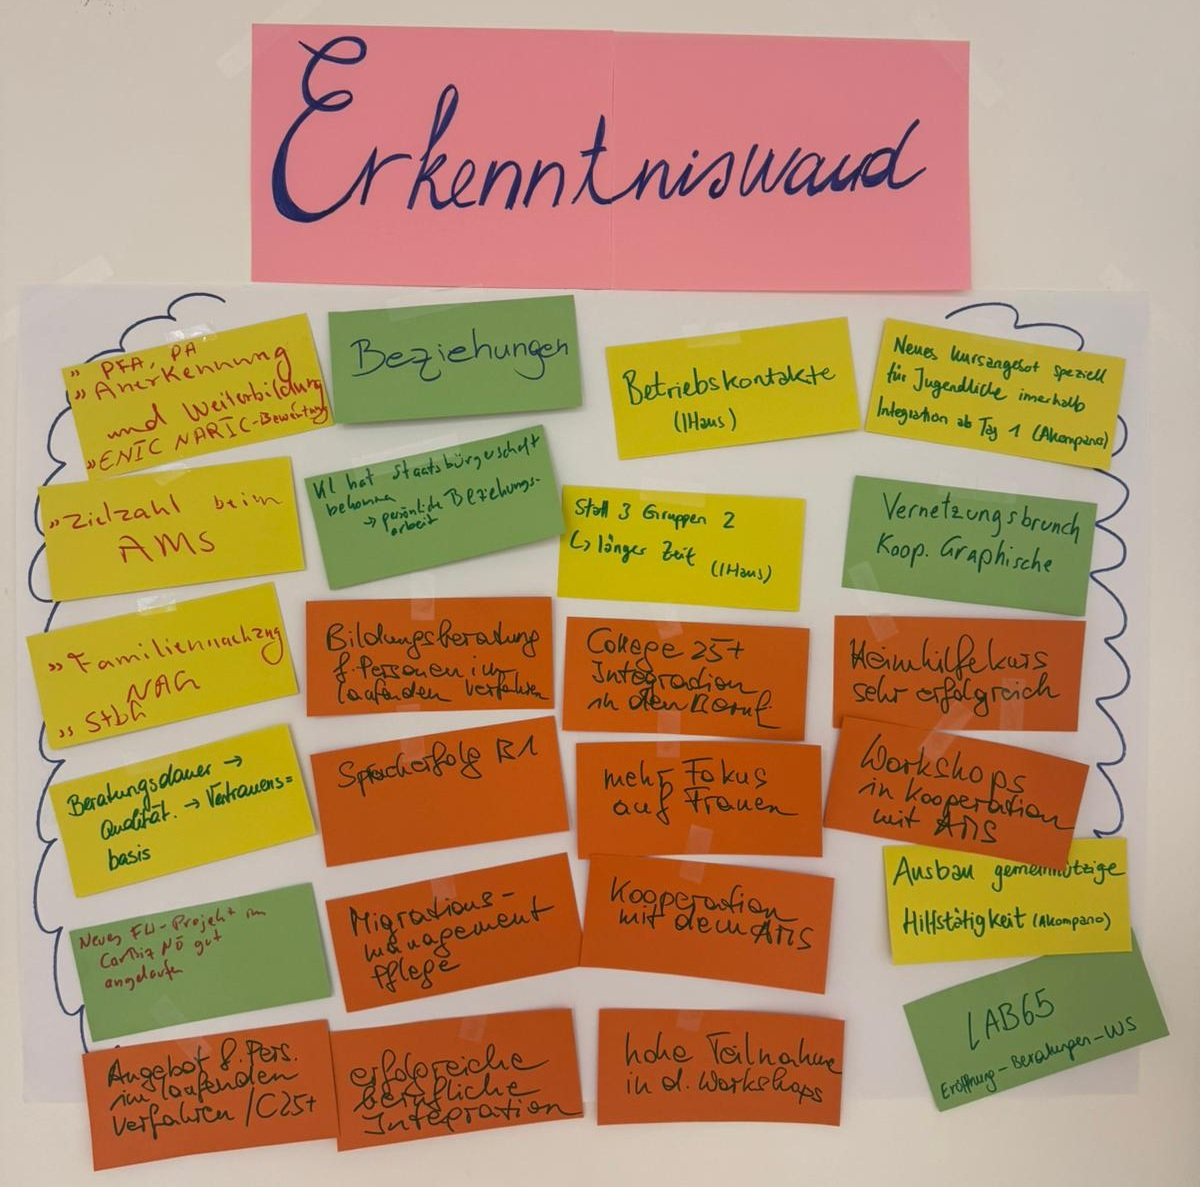 Erkenntniswand
" PFA, PA
" Anerkennung
und Weiterbildung
" ENIC NARIC-Bewertung
Beziehungen
Betriebskontakte
(IHaus)
Neues Kursangebot speziell
für Jugendliche innerhalb
Integration ab Tag 1 (Akompano)
" Zielzahl beim
AMS
Kl hat Staatsbürgerschaft
bekommen
→ persönliche Beziehungs-
arbeit
Statt 3 Gruppen 2
↳ länger Zeit (IHaus)
Vernetzungsbrunch
Koop. Graphische
" Familiennachzug
NAG
" Stbh
Bildungsberatung
f. Personen im
laufenden Verfahren
College 25+
Integration
in den Beruf
Heimhilfekurs
sehr erfolgreich
Beratungsdauer →
Qualität. → Vertrauens=
basis
Spracherfolg B1
mehr Fokus
auf Frauen
Workshops
in Kooperation
mit AMS
Neues FW-Projekt im
CarBiz NÖ gut
angelaufen
Migrations-
management
Pflege
Kooperation
mit dem AMS
Ausbau gemeinnützige
Hilfstätigkeit (Akompano)
LAB65
Eröffnung-Beratungen-WS
Angebot f. Pers.
im laufenden
Verfahren /C25+
erfolgreiche
berufliche
Integration
hohe Teilnahme
in d. Workshops